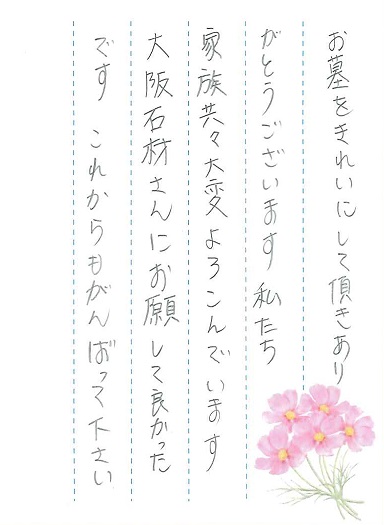 お墓をきれいにして頂きあり
がとうございます 私たち
家族共々大変よろこんでいます
大阪石材さんにお願して良かった
です これからもがんばって下さい